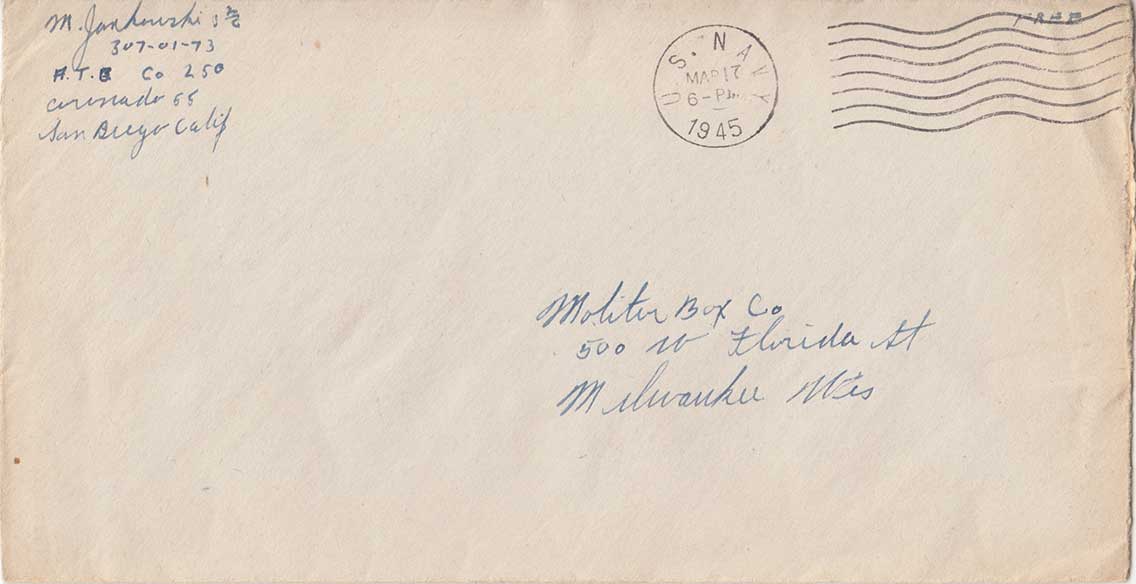 M. Jankowski S 2/c
307-01-73
A.T.B Co 250
Coronado 55
San Diego Calif
U.S. NAVY
MAR 17
6-PM
1945
FREE
Molitor Box Co
500 W Florida St
Milwaukee Wis